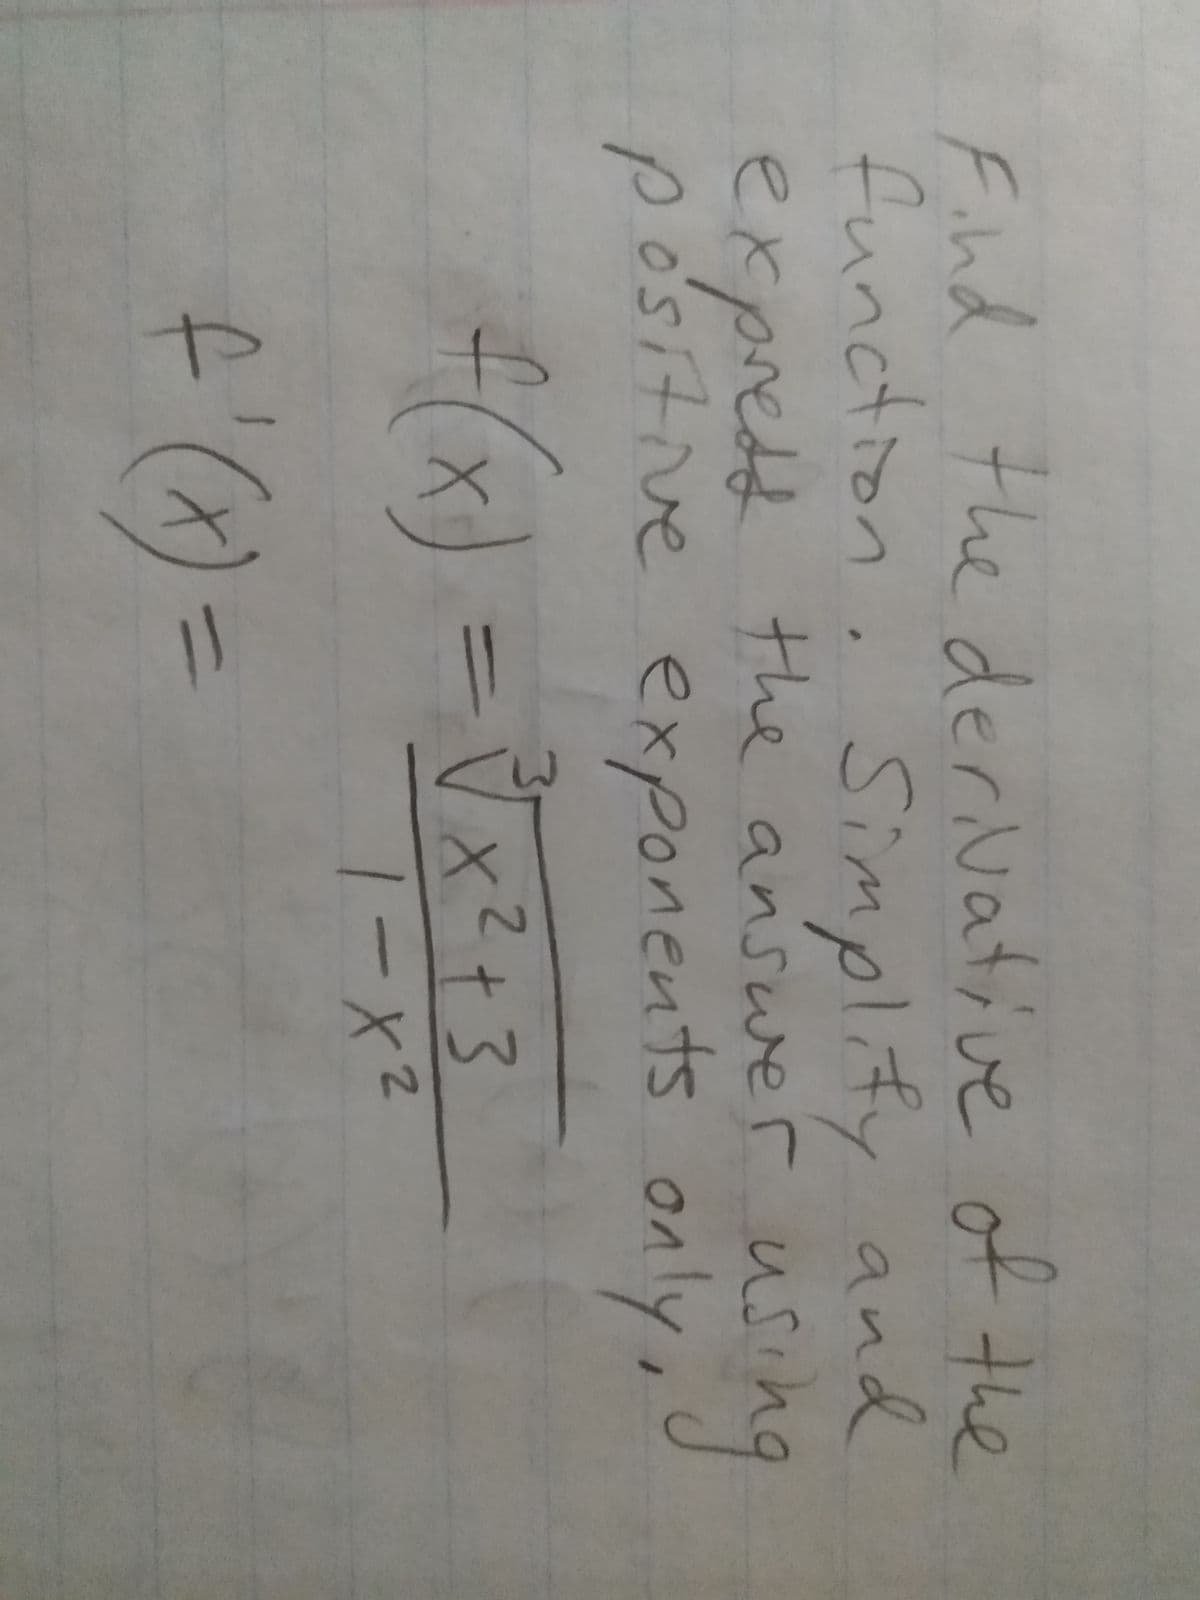 Find the derivative of the
function. Simplify and
express the answer using
positive exponents only.
f(x) = ∛(x²+3) / (1-x²)
f'(x) =